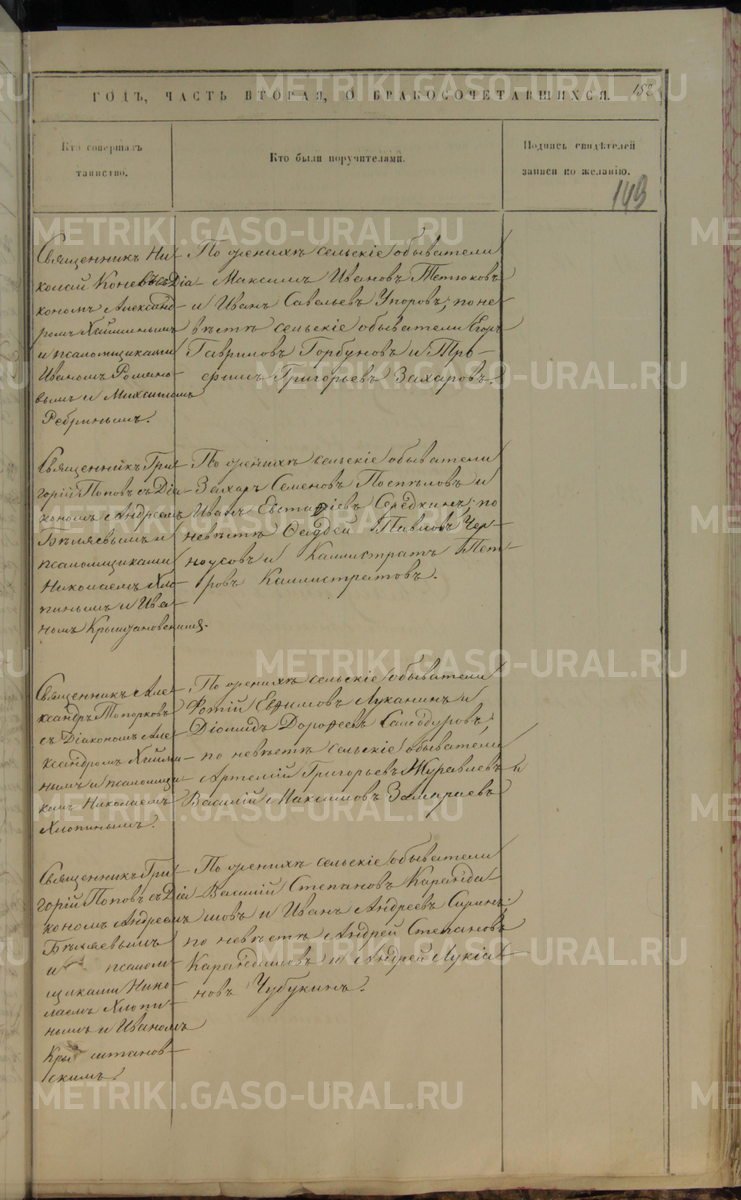 ГОДЪ, ЧАСТЬ ВТОРАЯ, О БРАКОСОЧЕТАВШИХСЯ.
152
Кто совершалъ
таинство.
Кто были поручителями.
Подпись свидѣтелей
записи по желанію.
143
Священникъ Ни-
колай Коневъ съ Діа-
кономъ Александ-
ромъ
и псаломщиками
Иваномъ Романо-
вымъ и Михаиломъ
Ребринымъ.
По женихѣ сельскіе обыватели
Максимъ Ивановъ Тетюковъ
и Иванъ Савельевъ Упоровъ; по не-
вѣстѣ сельскіе обыватели Егоръ
Гавриловъ Горбуновъ и Тро-
фимъ Григорьевъ Захаровъ.
Священникъ Гри-
горій Поповъ съ Діа-
кономъ Андреемъ
Бѣляевымъ и
псаломщиками
Николаемъ Хло-
пинымъ и Ива-
номъ
По женихѣ сельскіе обыватели
Захаръ Семеновъ Поспѣловъ и
Иванъ Евстафіевъ Середкинъ; по
невѣстѣ Павловъ Чер-
ноусовъ и Каллистратъ Пет-
ровъ Каллистратовъ.
Священникъ Але-
ксандръ Топорковъ
съ Діакономъ Але-
ксандромъ
нымъ и псаломщи-
комъ Николаемъ
Хлопинымъ.
По женихѣ сельскіе обыватели
Фотій Евфимовъ Луканинъ и
Діомидъ Дорофеевъ Самодуровъ;
по невѣстѣ сельскіе обыватели
Артемій Григорьевъ Журавлевъ и
Василій Максимовъ Замараевъ
Священникъ Гри-
горій Поповъ съ Діа-
кономъ Андреемъ
Бѣляевымъ
и псалом-
щиками Нико-
лаемъ Хлопи-
нымъ и Иваномъ
Крыштанов-
скимъ.
По женихѣ сельскіе обыватели
Василій Степановъ Каранда-
шовъ и Иванъ Андреевъ Суринъ;
по невѣстѣ Андрей Степановъ
Карандашовъ и Андрей Лукіа-
новъ Чубукинъ.
METRIKI.GASO-URAL.RU